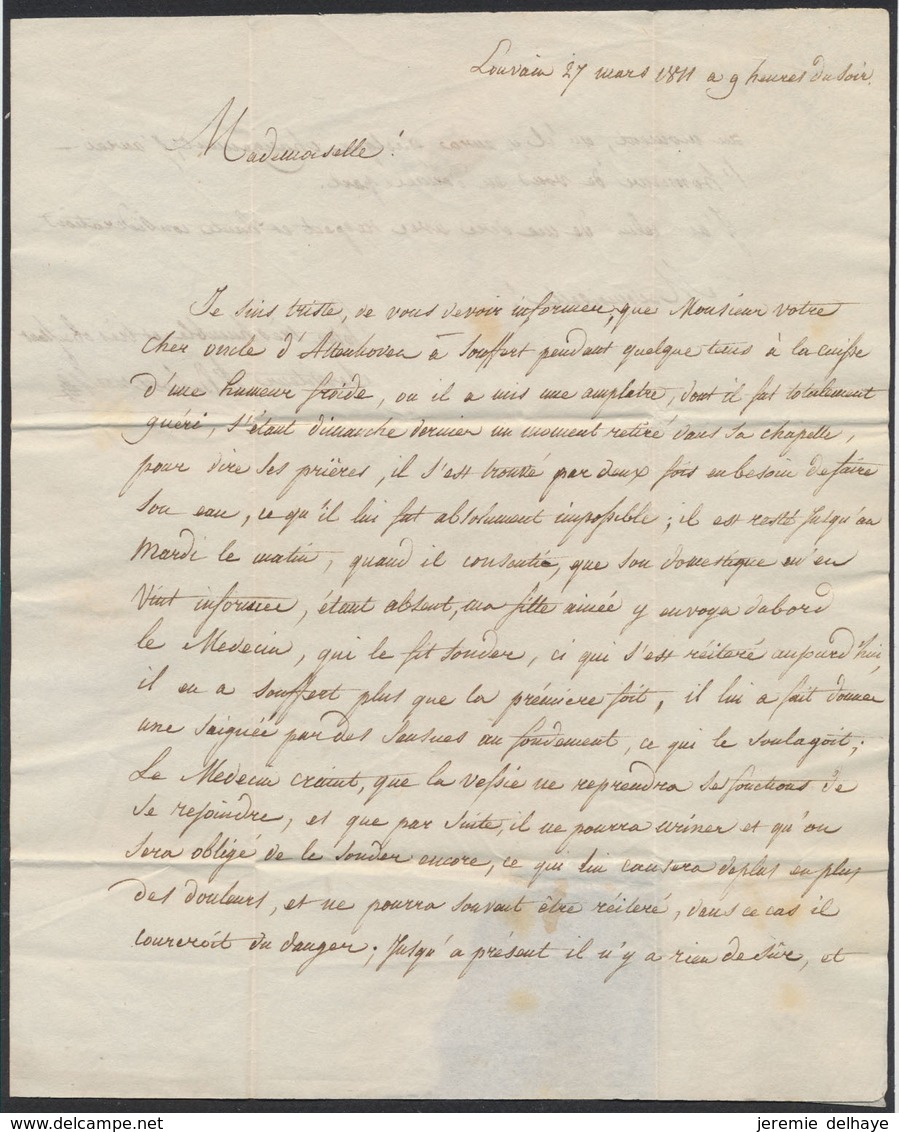 Louvain 27 mars 1811 a 9 heures du soir.
Mademoiselle!
Je suis triste, de vous devoir informer, que Monsieur votre
cher oncle d'Attenhoven à souffert pendant quelque tems à la cuisse
d'une humeur froide, ou il a mis une amplatre, dont il fut totalement
guéri, s'étant dimanche dernier un moment retiré dans sa chapelle,
pour dire ses prières, il s'est trouvé par deux fois en besoin de faire
son eau, ce qu'il lui fut absolument impossible; il est resté jusqu'au
Mardi le matin, quand il consentie, que son domestique m'en
Vint informer, étant absent, ma fille ainée y envoya dabord
le Medecin, qui le fit sonder, ci qui s'est réiteré aujourd'hui,
il en a souffert plus que la prémiere foit, il lui a fait donner
une saignée par des sensues au fondement, ce qui le soulagoit;
Le Medecin craint, que la vessie ne reprendra se fonctions de
se rejoindre, et que par suite, il ne pourra uriner et qu'on
sera obligé de le sonder encore, ce qui lui causera deplus en plus
des douleurs, et ne pourra souvent être réiteré, dans ce cas il
coureroit du danger; jusqu'a présent il n'y a rien de sûr, et
jeremie delhaye